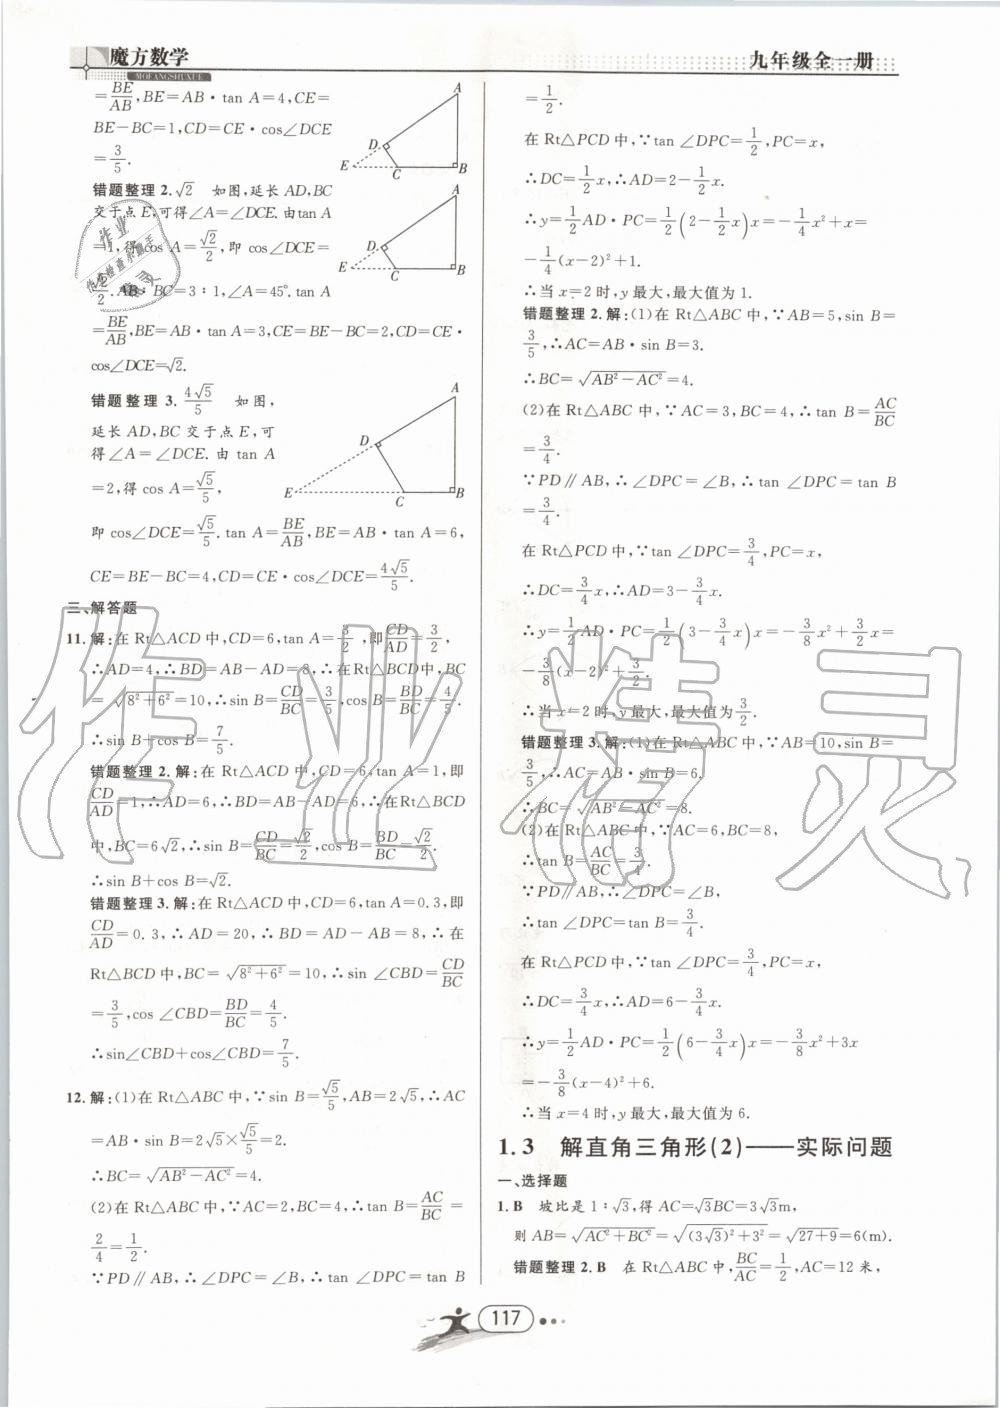 魔方数学
MOFANGSHUXUE
九年级全一册
=BE/AB,BE=AB·tan A=4,CE=
BE-BC=1,CD=CE·cos∠DCE
=3/5.
错题整理 2.√2 如图,延长 AD,BC
交于点 E,可得∠A=∠DCE.由tan A
=1,得 cos A=√2/2,即 cos∠DCE=
√2/2.AB∶BC=3∶1,∠A=45°.tan A
=BE/AB,BE=AB·tan A=3,CE=BE-BC=2,CD=CE·
cos∠DCE=√2.
错题整理 3. 4√5/5 如图,
延长 AD,BC 交于点 E,可
得∠A=∠DCE.由 tan A
=2,得 cos A=√5/5,
即 cos∠DCE=√5/5.tan A=BE/AB,BE=AB·tan A=6,
CE=BE-BC=4,CD=CE·cos∠DCE=4√5/5.
A
D
E
C
B
A
D
E
C
B
A
D
E
C
B
三、解答题
11.解:在 Rt△ACD 中,CD=6,tan A=3/2,即CD/AD=3/2,
∴AD=4,∴BD=AB-AD=8,∴在Rt△BCD中,BC
=√(8²+6²)=10,∴sin B=CD/BC=3/5,cos B=BD/BC=4/5.
∴sin B+cos B=7/5.
错题整理 2.解:在 Rt△ACD 中,CD=6,tan A=1,即
CD/AD=1,∴AD=6,∴BD=AB-AD=6,∴在Rt△BCD
中,BC=6√2,∴sin B=CD/BC=√2/2,cos B=BD/BC=√2/2.
∴sin B+cos B=√2.
错题整理 3.解:在 Rt△ACD 中,CD=6,tan A=0.3,即
CD/AD=0.3,∴AD=20,∴BD=AD-AB=8,∴在
Rt△BCD 中,BC=√(8²+6²)=10,∴sin ∠CBD=CD/BC
=3/5,cos ∠CBD=BD/BC=4/5.
∴sin∠CBD+cos∠CBD=7/5.
12.解:(1)在 Rt△ABC 中,∵sin B=√5/5,AB=2√5,∴AC
=AB·sin B=2√5×√5/5=2.
∴BC=√(AB²-AC²)=4.
(2)在 Rt△ABC 中,∵AC=2,BC=4,∴tan B=AC/BC=
2/4=1/2.
∵PD∥AB,∴∠DPC=∠B,∴tan ∠DPC=tan B
=1/2.
在 Rt△PCD 中,∵tan ∠DPC=1/2,PC=x,
∴DC=1/2x,∴AD=2-1/2x.
∴y=1/2AD·PC=1/2(2-1/2x)x=-1/4x²+x=
-1/4(x-2)²+1.
∴当 x=2 时,y 最大,最大值为 1.
错题整理 2.解:(1)在 Rt△ABC 中,∵AB=5,sin B=
3/5,∴AC=AB·sin B=3.
∴BC=√(AB²-AC²)=4.
(2)在 Rt△ABC 中,∵AC=3,BC=4,∴tan B=AC/BC
=3/4.
∵PD∥AB,∴∠DPC=∠B,∴tan ∠DPC=tan B
=3/4.
在 Rt△PCD 中,∵tan ∠DPC=3/4,PC=x,
∴DC=3/4x,∴AD=3-3/4x.
∴y=1/2AD·PC=1/2(3-3/4x)x=-3/8x²+3/2x=
-3/8(x-2)²+3/2.
∴当 x=2 时,y 最大,最大值为3/2.
错题整理 3.解:(1)在 Rt△ABC 中,∵AB=10,sin B=
3/5,∴AC=AB·sin B=6.
∴BC=√(AB²-AC²)=8.
(2)在 Rt△ABC 中,∵AC=6,BC=8,
∴tan B=AC/BC=3/4.
∵PD∥AB,∴∠DPC=∠B,
∴tan ∠DPC=tan B=3/4.
在 Rt△PCD 中,∵tan ∠DPC=3/4,PC=x,
∴DC=3/4x,∴AD=6-3/4x.
∴y=1/2AD·PC=1/2(6-3/4x)x=-3/8x²+3x
=-3/8(x-4)²+6.
∴当 x=4 时,y 最大,最大值为 6.
1.3 解直角三角形(2)——实际问题
一、选择题
1.B 坡比是 1∶√3,得 AC=√3BC=3√3m,
则 AB=√(AC²+BC²)=√((3√3)²+3²)=√(27+9)=6(m).
错题整理 2.B 在 Rt△ABC 中,BC/AC=1/2,AC=12 米,
117
作业精灵